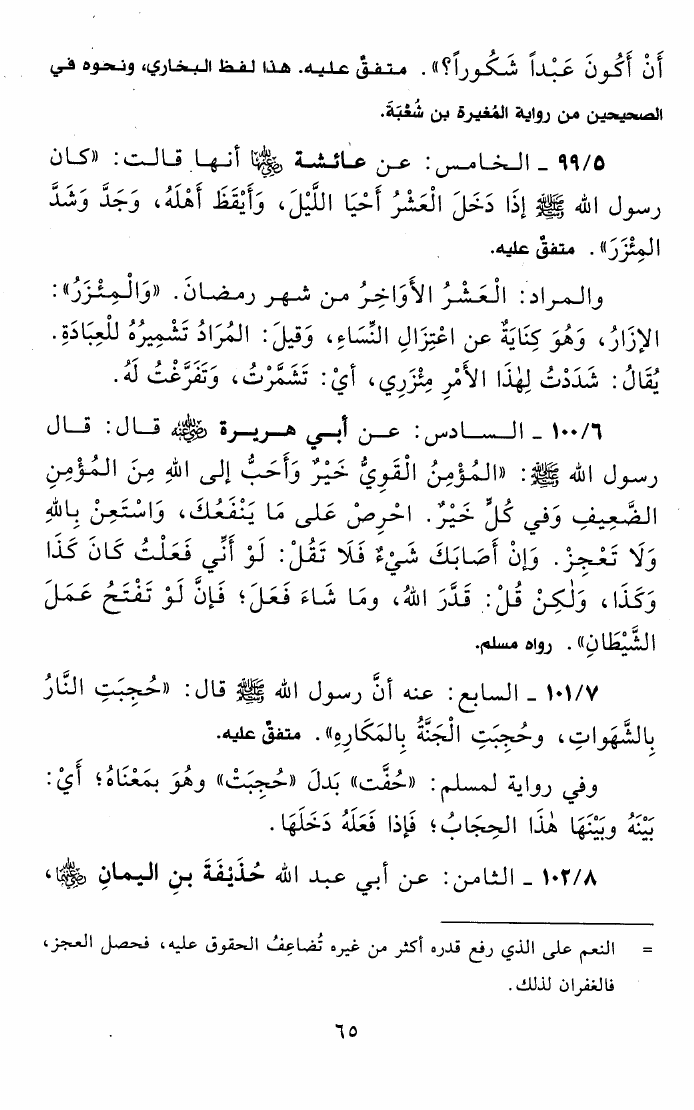 أَنْ أَكُونَ عَبْداً شَكُوراً؟». متفقٌ عليه. هذا لفظ البخاري، ونحوه في
الصحيحين من رواية المُغيرة بن شُعْبَةَ.
٩٩/٥ ـ الخامس: عن عائشة رضي الله عنها أنها قالت: «كان
رسول الله ﷺ إِذَا دَخَلَ الْعَشْرُ أَحْيَا اللَّيْلَ، وَأَيْقَظَ أَهْلَهُ، وَجَدَّ وَشَدَّ
المِئْزَرَ». متفقٌ عليه.
والمراد: الْعَشْرُ الأَوَاخِرُ من شهر رمضانَ. «وَالْمِئْزَرُ»:
الإزَارُ، وَهُوَ كِنَايَةٌ عن اعْتِزَالِ النِّسَاءِ، وَقيلَ: المُرَادُ تَشْمِيرُهُ للْعِبَادَةِ.
يُقَالُ: شَدَدْتُ لِهٰذَا الأَمْرِ مِئْزَرِي، أيْ: تَشَمَّرْتُ، وَتَفَرَّغْتُ لَهُ.
١٠٠/٦ ـ السادس: عن أبي هريرة رضي الله عنه قال: قال
رسول الله ﷺ: «المُؤْمِنُ الْقَوِيُّ خَيْرٌ وَأَحَبُّ إلى اللهِ مِنَ المُؤْمِنِ
الضَّعِيفِ وَفي كُلٍّ خَيْرٌ. احْرِصْ عَلى مَا يَنْفَعُكَ، وَاسْتَعِنْ بِاللهِ
وَلَا تَعْجِزْ. وَإنْ أَصَابَكَ شَيْءٌ فَلَا تَقُلْ: لَوْ أَنِّي فَعَلْتُ كَانَ كَذَا
وَكَذَا، وَلٰكِنْ قُلْ: قَدَّرَ اللهُ، ومَا شَاءَ فَعَلَ؛ فَإنَّ لَوْ تَفْتَحُ عَمَلَ
الشَّيْطَانِ». رواه مسلم.
١٠١/٧ ـ السابع: عنه أنَّ رسول الله ﷺ قال: «حُجِبَتِ النَّارُ
بِالشَّهَواتِ، وحُجِبَتِ الْجَنَّةُ بِالمَكَارِهِ». متفقٌ عليه.
وفي رواية لمسلم: «حُفَّت» بَدلَ «حُجِبَتْ» وهُوَ بمَعْنَاهُ؛ أيْ:
بَيْنَهُ وبَيْنَهَا هٰذَا الحِجَابُ؛ فَإذا فَعَلَهُ دَخَلَهَا.
١٠٢/٨ ـ الثامن: عن أبي عبد الله حُذَيْفَةَ بنِ اليمانِ رضي الله عنهما،
= النعم على الذي رفع قدره أكثر من غيره تُضاعِفُ الحقوق عليه، فحصل العجز،
فالغفران لذلك.
٦٥